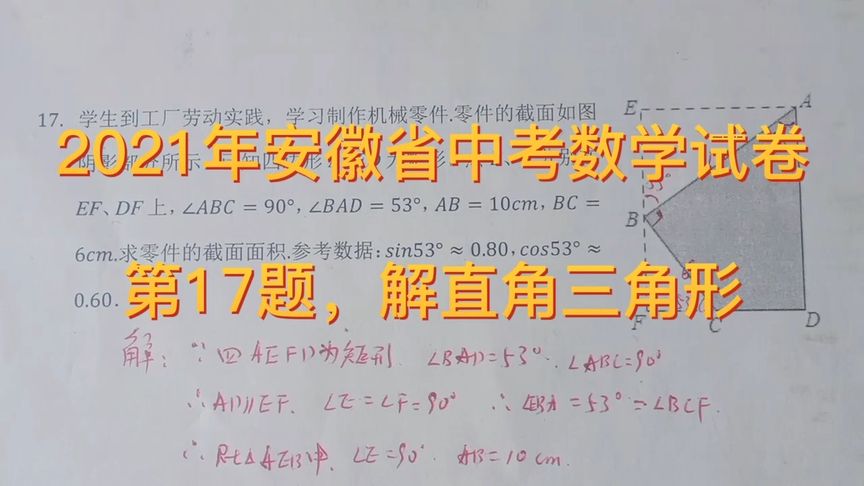 17. 学生到工厂劳动实践，学习制作机械零件.零件的截面如图
2021年安徽省中考数学试卷
EF、DF 上，∠ABC = 90°，∠BAD = 53°，AB = 10cm，BC =
6cm.求零件的截面面积.参考数据：sin53° ≈ 0.80，cos53° ≈
0.60.
第17题，解直角三角形
E
A
53°
B
F
C
D
解：∵ 四AEFD为矩形. ∠BAD=53°. ∠ABC=90°
∴AD∥EF. ∠E=∠F=90° ∴ ∠EBA=53°=∠BCF.
∴ Rt△AEB中. ∠E=90°. AB=10cm.